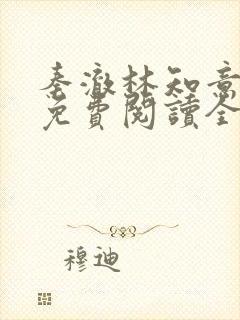 秦澈林知意
免費閱讀全
穆迪